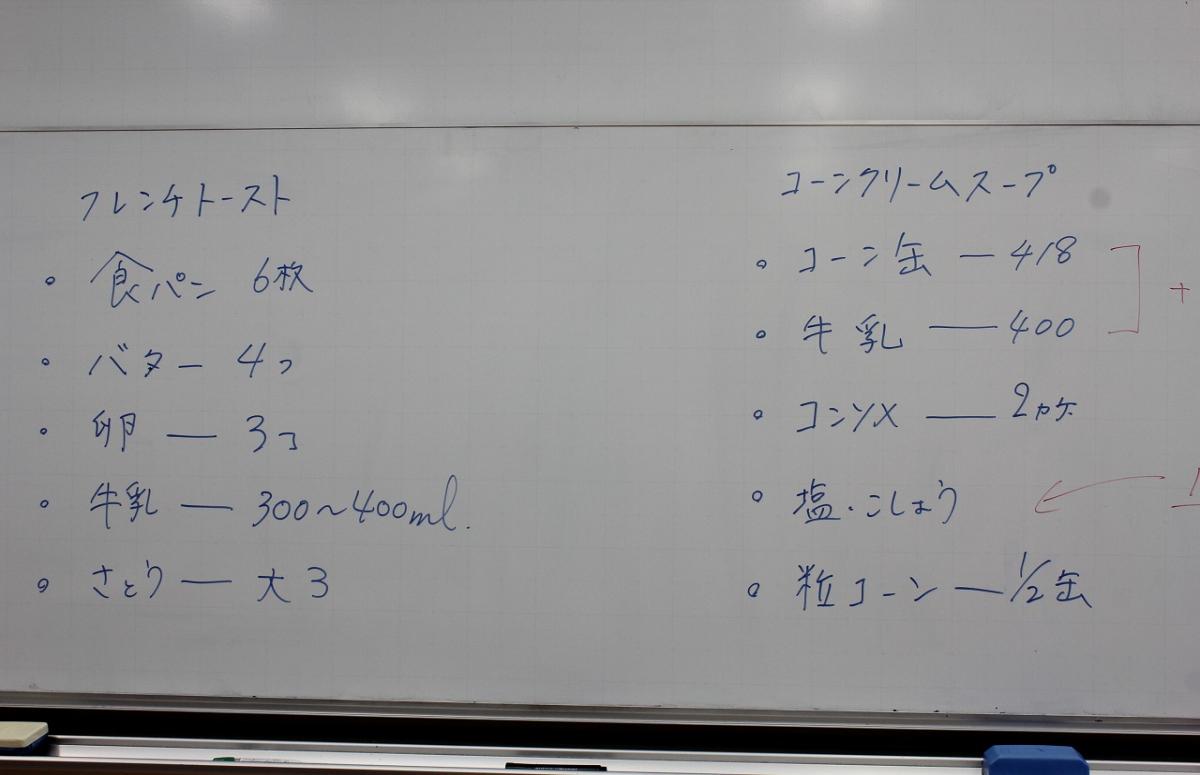 フレンチトースト
。食パン 6枚
。バター 4コ
。卵 ー 3コ
。牛乳 ー 300〜400ml.
。さとう ー 大3
コーンクリームスープ
。コーン缶 ー 418
。牛乳 ー 400
+
。コンソメ ー 2カケ
。塩・こしょう
。粒コーン ー 1/2缶